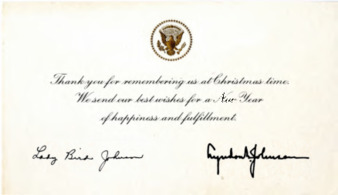 Thank you for remembering us at Christmas time.
We send our best wishes for a New Year
of happiness and fulfillment.
Lady Bird Johnson Lyndon B. Johnson